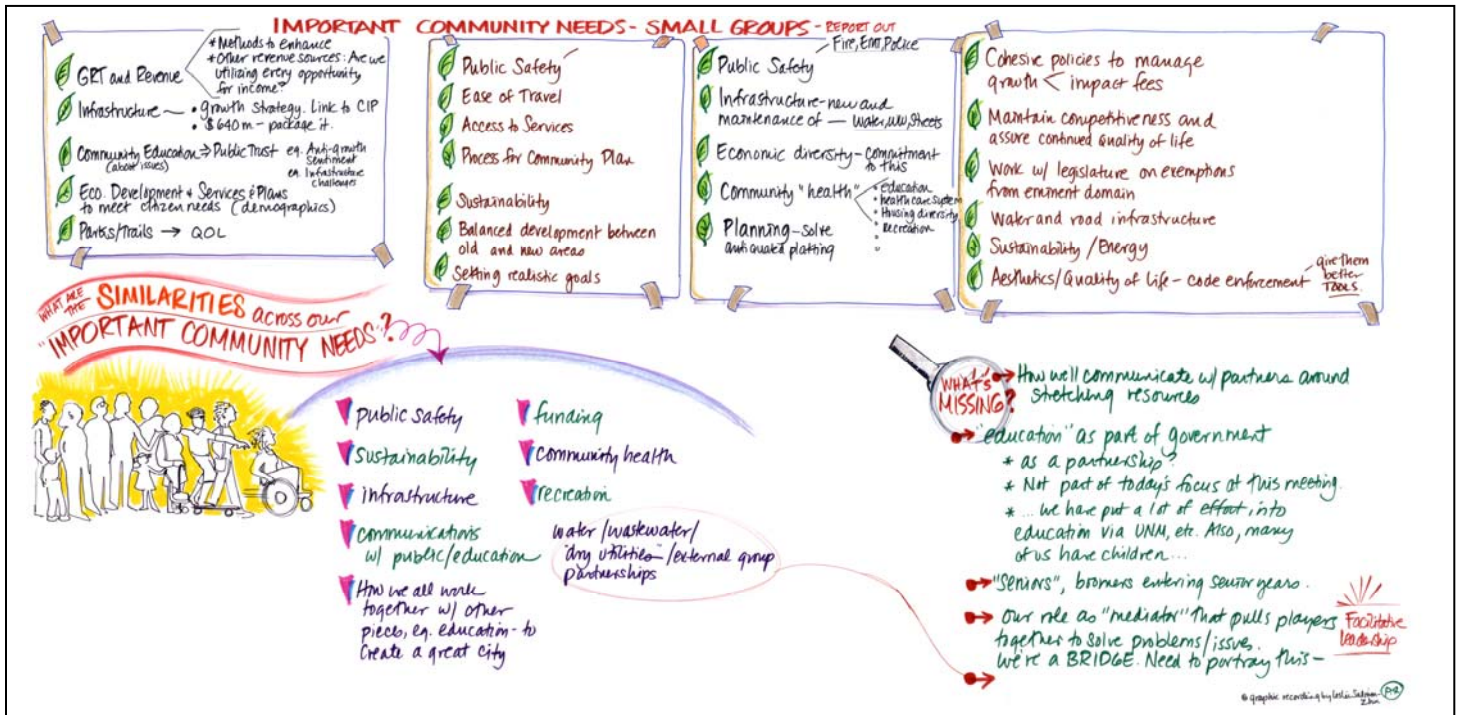 IMPORTANT COMMUNITY NEEDS - SMALL GROUPS - REPORT OUT
GRT and Revenue
* Methods to enhance
* Other revenue sources: Are we
utilizing every opportunity
for income?
Infrastructure
• growth strategy. Link to CIP
• $640m - package it.
Community Education ⇒ Public Trust
(about issues)
eg. Anti-growth
sentiment
eg. Infrastructure
challenges
Eco. Development & Services & Plans
to meet citizen needs (demographics)
Parks/Trails → QOL
Public Safety
Ease of Travel
Access to Services
Process for Community Plan
Sustainability
Balanced development between
old and new areas
Setting realistic goals
Fire, EMT, Police
Public Safety
Infrastructure - new and
maintenance of — Water, WW, Streets
Economic diversity - commitment
to this
Community "health"
• education
• health care system
• Housing diversity
• recreation
Planning - Solve
antiquated platting
Cohesive policies to manage
growth < impact fees
Maintain competitiveness and
assure continued quality of life
Work w/ legislature on exemptions
from eminent domain
Water and road infrastructure
Sustainability / Energy
Aesthetics/Quality of Life - code enforcement
give them
better
TOOLS.
WHAT ARE
THE SIMILARITIES across our
"IMPORTANT COMMUNITY NEEDS"?
public safety
sustainability
infrastructure
communications
w/ public/education
How we all work
together w/ other
pieces, eg. education - to
Create a great city
funding
community health
recreation
water/wastewater/
"dry utilities"/external group
partnerships
WHAT'S
MISSING?
How we'll communicate w/ partners around
stretching resources
"education" as part of government
* as a partnership?
* Not part of today's focus at this meeting.
* ... we have put a lot of effort into
education via UNM, etc. Also, many
of us have children...
"Seniors", boomers entering senior years.
Our role as "mediator" that pulls players
together to solve problems/issues.
We're a BRIDGE. Need to portray this -
Facilitative
leadership
© graphic recording by Leslie
p.2